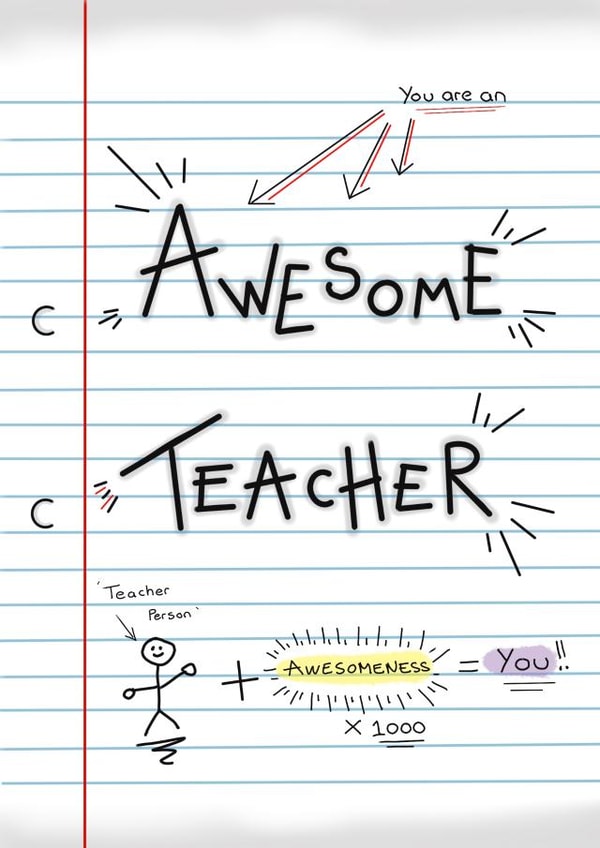 You are an
AWESOME
C
TEACHER
C
'Teacher
Person'
+ AWESOMENESS = You!!
X 1000